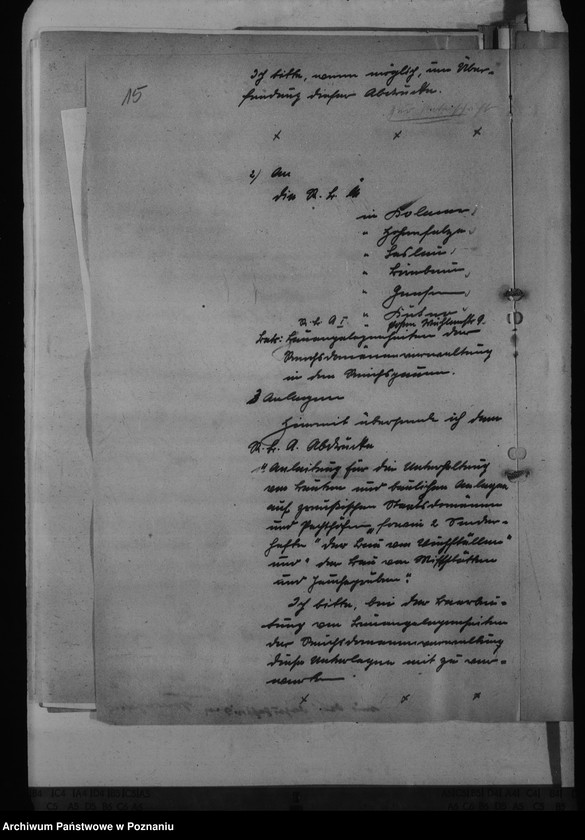 15
Ich bitte, wenn möglich, um Über-
sendung dieser Abdrucke.
x x x
2) An
die R. B. Ä
in Kolmar,
" Hohensalza,
" Leslau,
" Birnbaum,
" Gnesen,
" Kutno
R. B. A I " Posen
Betr: Bauangelegenheiten der
Reichsdomänenverwaltung
in den Reichsgauen.
3 Anlagen
Hiermit übersende ich dem
R. B. A. Abdrucke
"Anleitung für die Unterhaltung
von Bauten und baulichen Anlagen
auf preußischen Staatsdomänen
und Pachthöfen", sowie 2 Sonder-
hefte "Der Bau von
und "der Bau von Miststätten
und Jauchegruben".
Ich bitte, bei der Bearbei-
tung von Bauangelegenheiten
der Reichsdomänenverwaltung
diese Unterlagen mit zu ver-
werten.
x x x
Archiwum Państwowe w Poznaniu